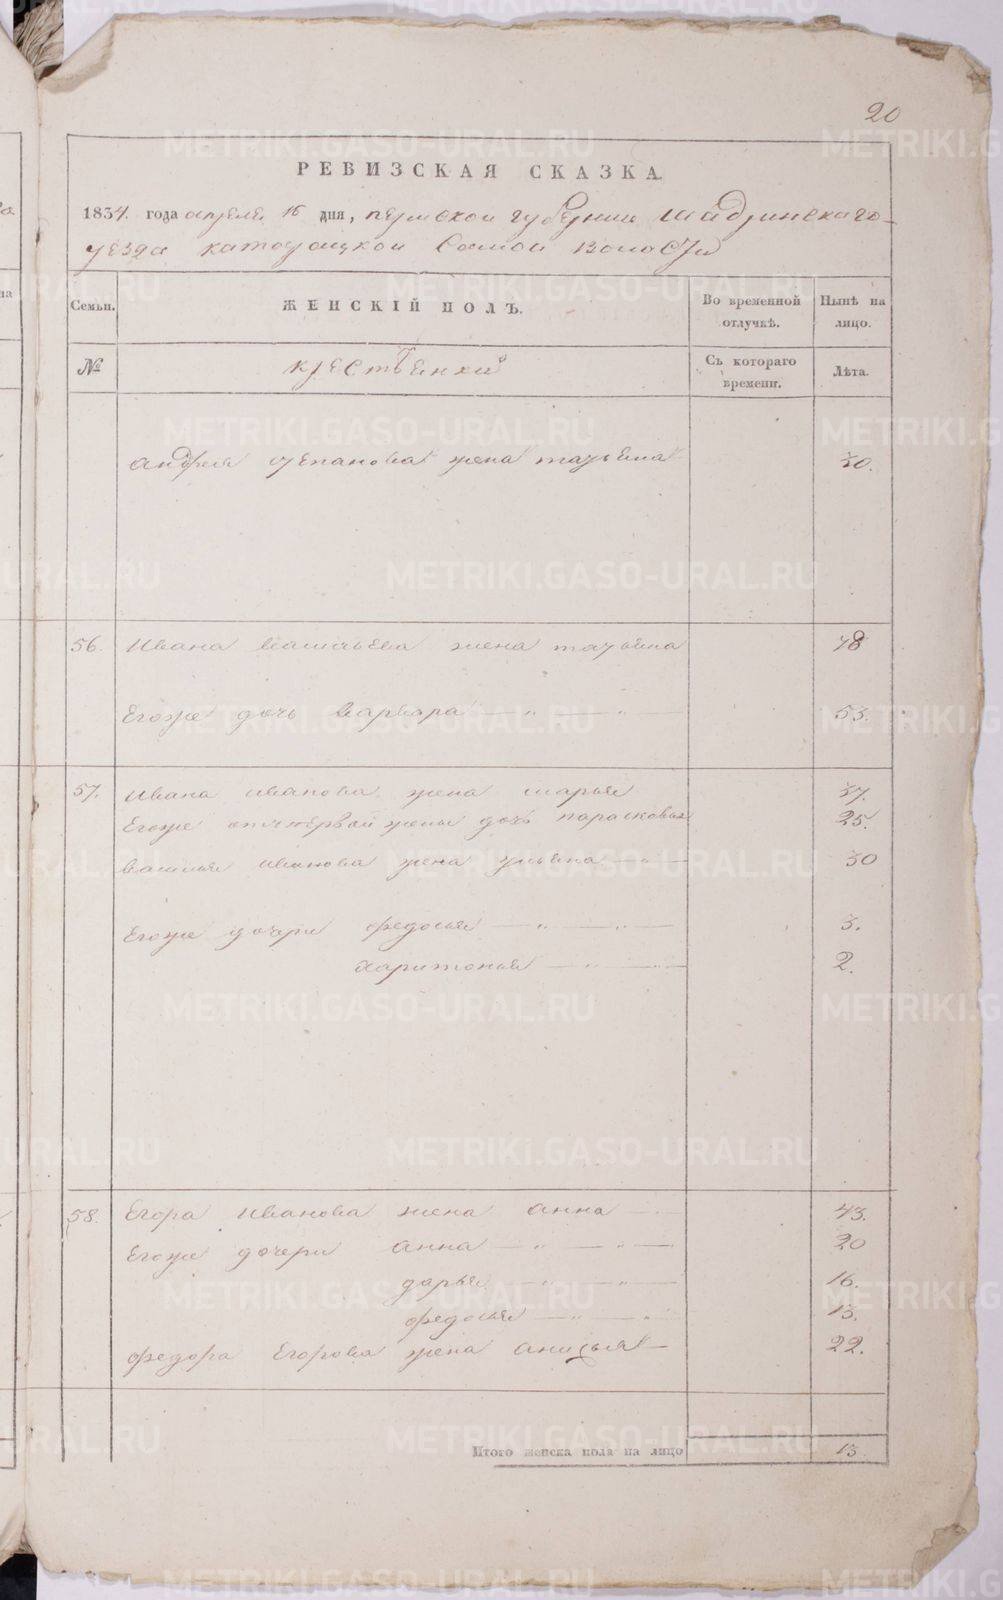 20
РЕВИЗСКАЯ СКАЗКА.
1834. года апреля 16 дня, пермской губернии шадринскаго
уезда катодайцкой самой волости
Семьи.
ЖЕНСКІЙ ПОЛЪ.
Во временной отлучкѣ.
Нынѣ на лицо.
№
крестьянки
Съ котораго времени.
Лѣта.
андрея степанова жена татьяна 30.
56. Ивана васильева жена татьяна 78
Егоже дочь варвара 53.
57. Ивана иванова жена марья 37.
Егоже отпервой жены дочь парасковья 25.
василья иванова жена ульяна 30
Егоже дочери федосья 3.
харитонья 2.
58. Егора иванова жена анна 43.
Егоже дочери анна 20
дарья 16.
федосья 13.
федора Егорова жена анисья 22.
Итого женска пола на лицо 13
METRIKI.GASO-URAL.RU